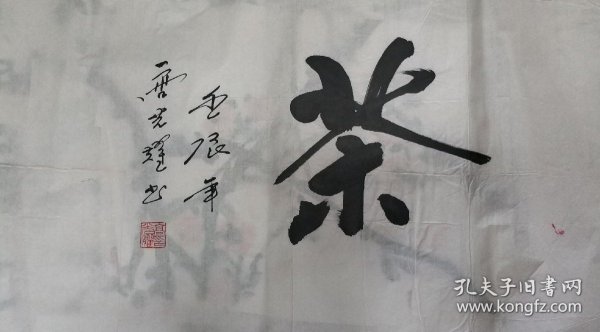 茶
壬辰年
光耀书
孔夫子旧书网
www.kongfz.com